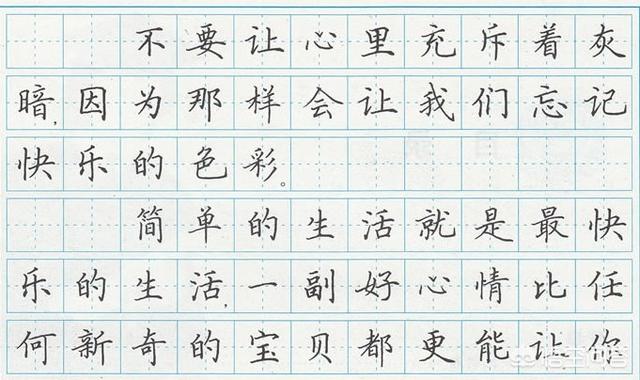 不要让心里充斥着灰
暗,因为那样会让我们忘记
快乐的色彩。
简单的生活就是最快
乐的生活,一副好心情比任
何新奇的宝贝都更能让你